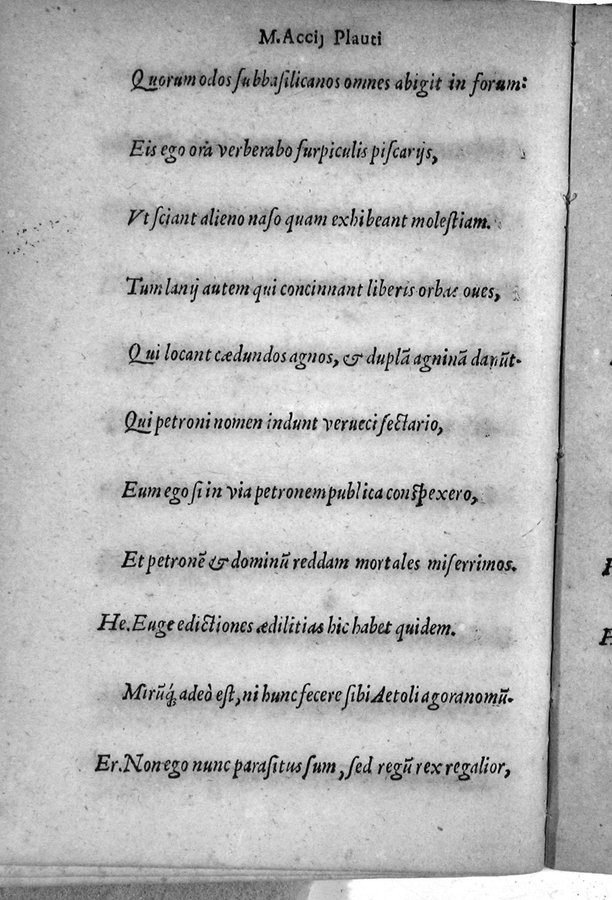 M. Accij Plauti
Quorum odos ſubbaſilicanos omnes abigit in forum:
Eis ego ora verberabo ſurpiculis piſcarijs,
Vt ſciant alieno naſo quam exhibeant moleſtiam.
Tum lanij autem qui concinnant liberis orbas oues,
Qui locant cædundos agnos, & duplā agninā danūt.
Qui petroni nomen indunt verueci ſectario,
Eum ego ſi in via petronem publica conſpexero,
Et petronē & dominū reddam mortales miſerrimos.
He. Euge edictiones ædilitias hic habet quidem.
Mirūq́; adeò eſt, ni hunc fecere ſibi Aetoli agoranomū.
Er. Non ego nunc paraſitus ſum, ſed regū rex regalior,